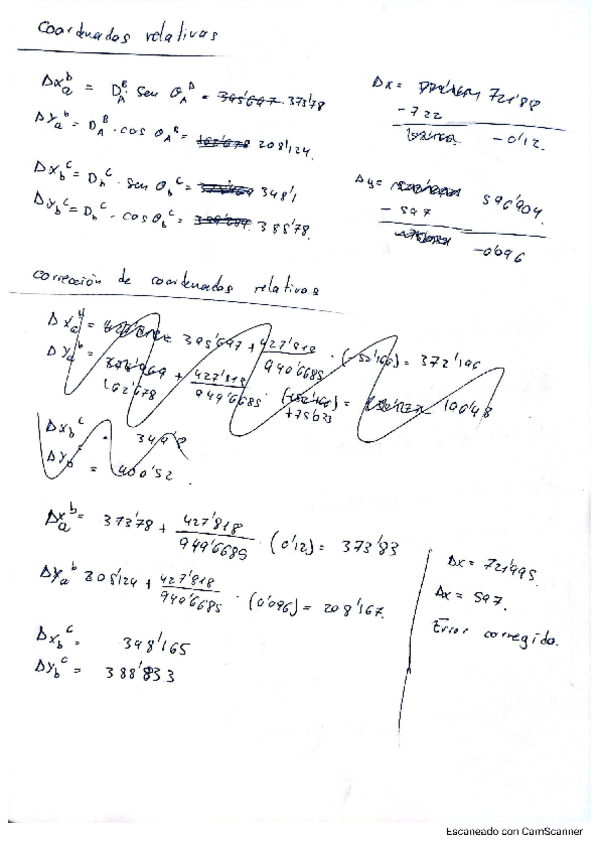 coordenadas relativas
Δxₐᵇ = D_A^B · sen θ_A^B = 373'78
Δyₐᵇ = D_A^B · cos θ_A^B = 208'124.
Δx_b^c = D_b^c · sen θ_b^c = 348'1
Δy_b^c = D_b^c · cos θ_b^c = 388'78.
Δx = 721'88
- 722
-0'12.
Δy = 596'904
- 597
-0'096
corrección de coordenadas relativas
Δxₐᵇ = 395'697 + 427'818/940'6685 · (-52'166) = 372'196
Δyₐᵇ = 162'678 + 427'818/949'6685 · +75'033 =
Δx_b^c = 
Δy_b^c = 400'52.
Δxₐᵇ = 373'78 + 427'818/949'6685 · (0'12) = 373'83
Δyₐᵇ 208'124 + 427'818/940'6685 · (0'096) = 208'167.
Δx_b^c = 348'165
Δy_b^c = 388'833
Δx = 721'995.
Δx = 597.
Error corregido.
Escaneado con CamScanner